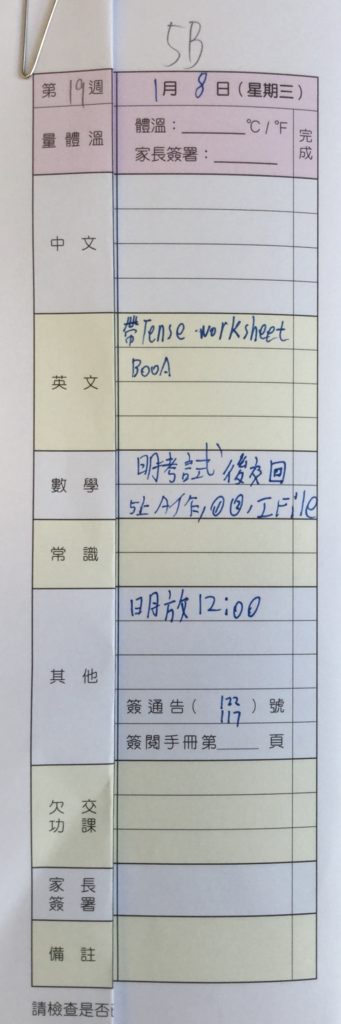 5B
第19週 1月8日(星期三)
量體溫 體溫:______℃/℉ 完成
家長簽署:______
中文
帶Tense worksheet
英文 BooA
數學 明考試後交回
5上A作,①②,工File
常識
明放12:00
其他
簽通告( 122 117 )號
簽閱手冊第____頁
欠交功課
家長簽署
備註
請檢查是否